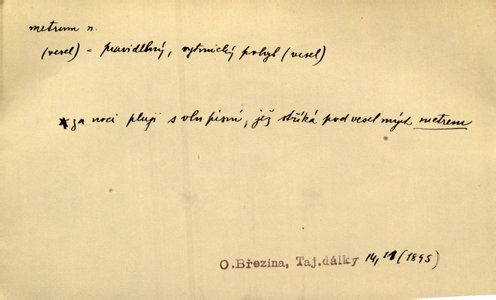 metrum n.
(vesel) - pravidelný, rytmický pohyb (vesel)
za noci pluji s vln písní, jež stříká pod vesel mých metrem
O.Březina, Taj.dálky 14, (1895)